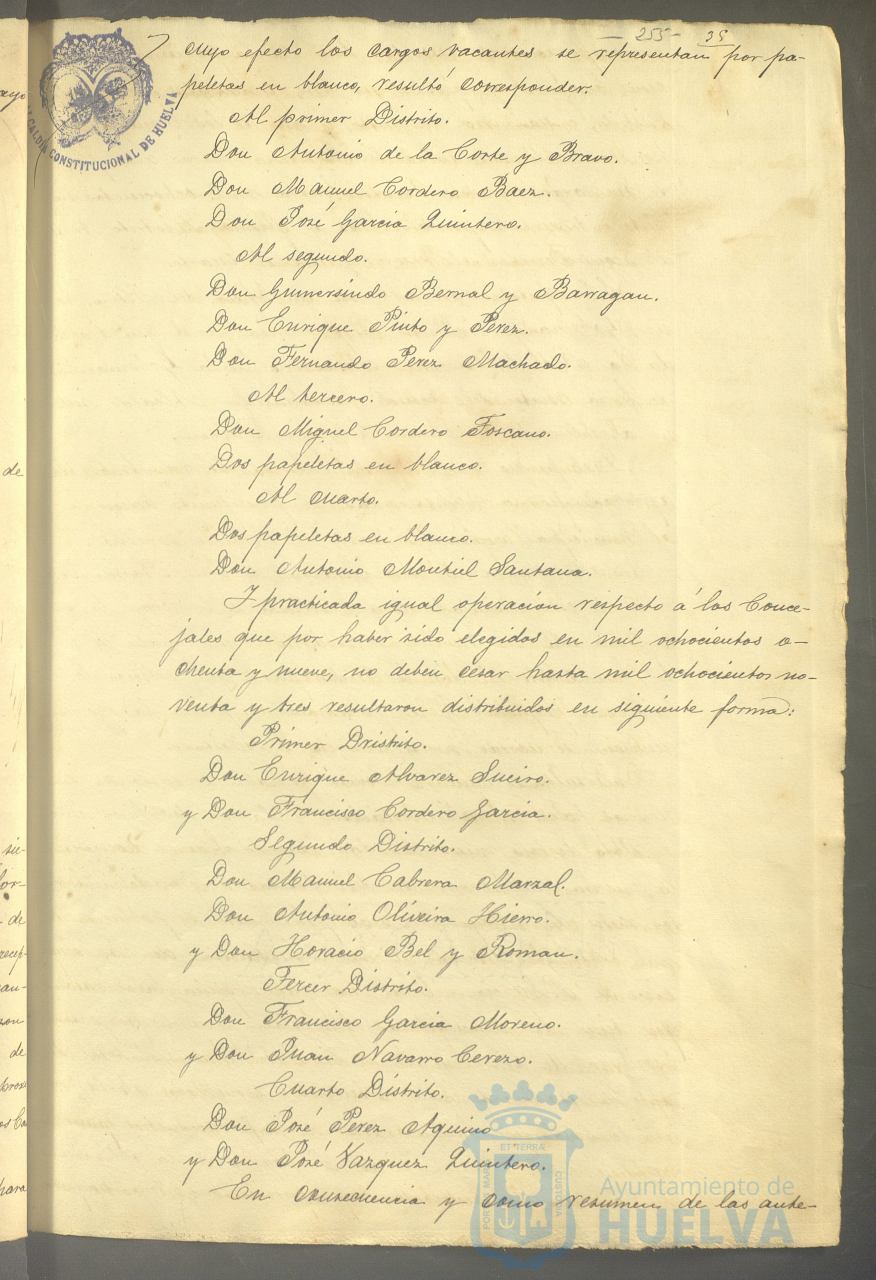 - 255 - 35
cuyo efecto los cargos vacantes se representan por pa-
peletas en blanco, resultó corresponder.
Al primer Distrito.
Don Antonio de la Corte y Bravo.
Don Manuel Cordero Baez.
Don José Garcia Quintero.
Al segundo.
Don Gumersindo Bernal y Barragan.
Don Enrique Pinto y Perez.
Don Fernando Perez Machado.
Al tercero.
Don Miguel Cordero Toscano.
Dos papeletas en blanco.
Al cuarto.
Dos papeletas en blanco.
Don Antonio Montiel Santana.
Y practicada igual operacion respecto á los Conce-
jales que por haber sido elegidos en mil ochocientos o-
chenta y nueve, no deben cesar hasta mil ochocientos no-
venta y tres resultaron distribuidos en siguiente forma:
Primer Dristrito.
Don Enrique Alvarez Sueiro.
y Don Francisco Cordero Garcia.
Segundo Distrito.
Don Manuel Cabrera Marzal.
Don Antonio Oliveira Hierro.
y Don Horacio Bel y Roman.
Tercer Distrito.
Don Francisco Garcia Moreno.
y Don Juan Navarro Cerezo.
Cuarto Distrito.
Don José Perez Aquino
y Don José Vazquez Quintero.
En consecuencia y como resumen de las ante-
ALCALDIA CONSTITUCIONAL DE HUELVA
ayo
de
sie-
for-
de
recep-
an-
zon
de
para
PORTUS MARIS ET TERRAE CUSTODIA
Ayuntamiento de
HUELVA